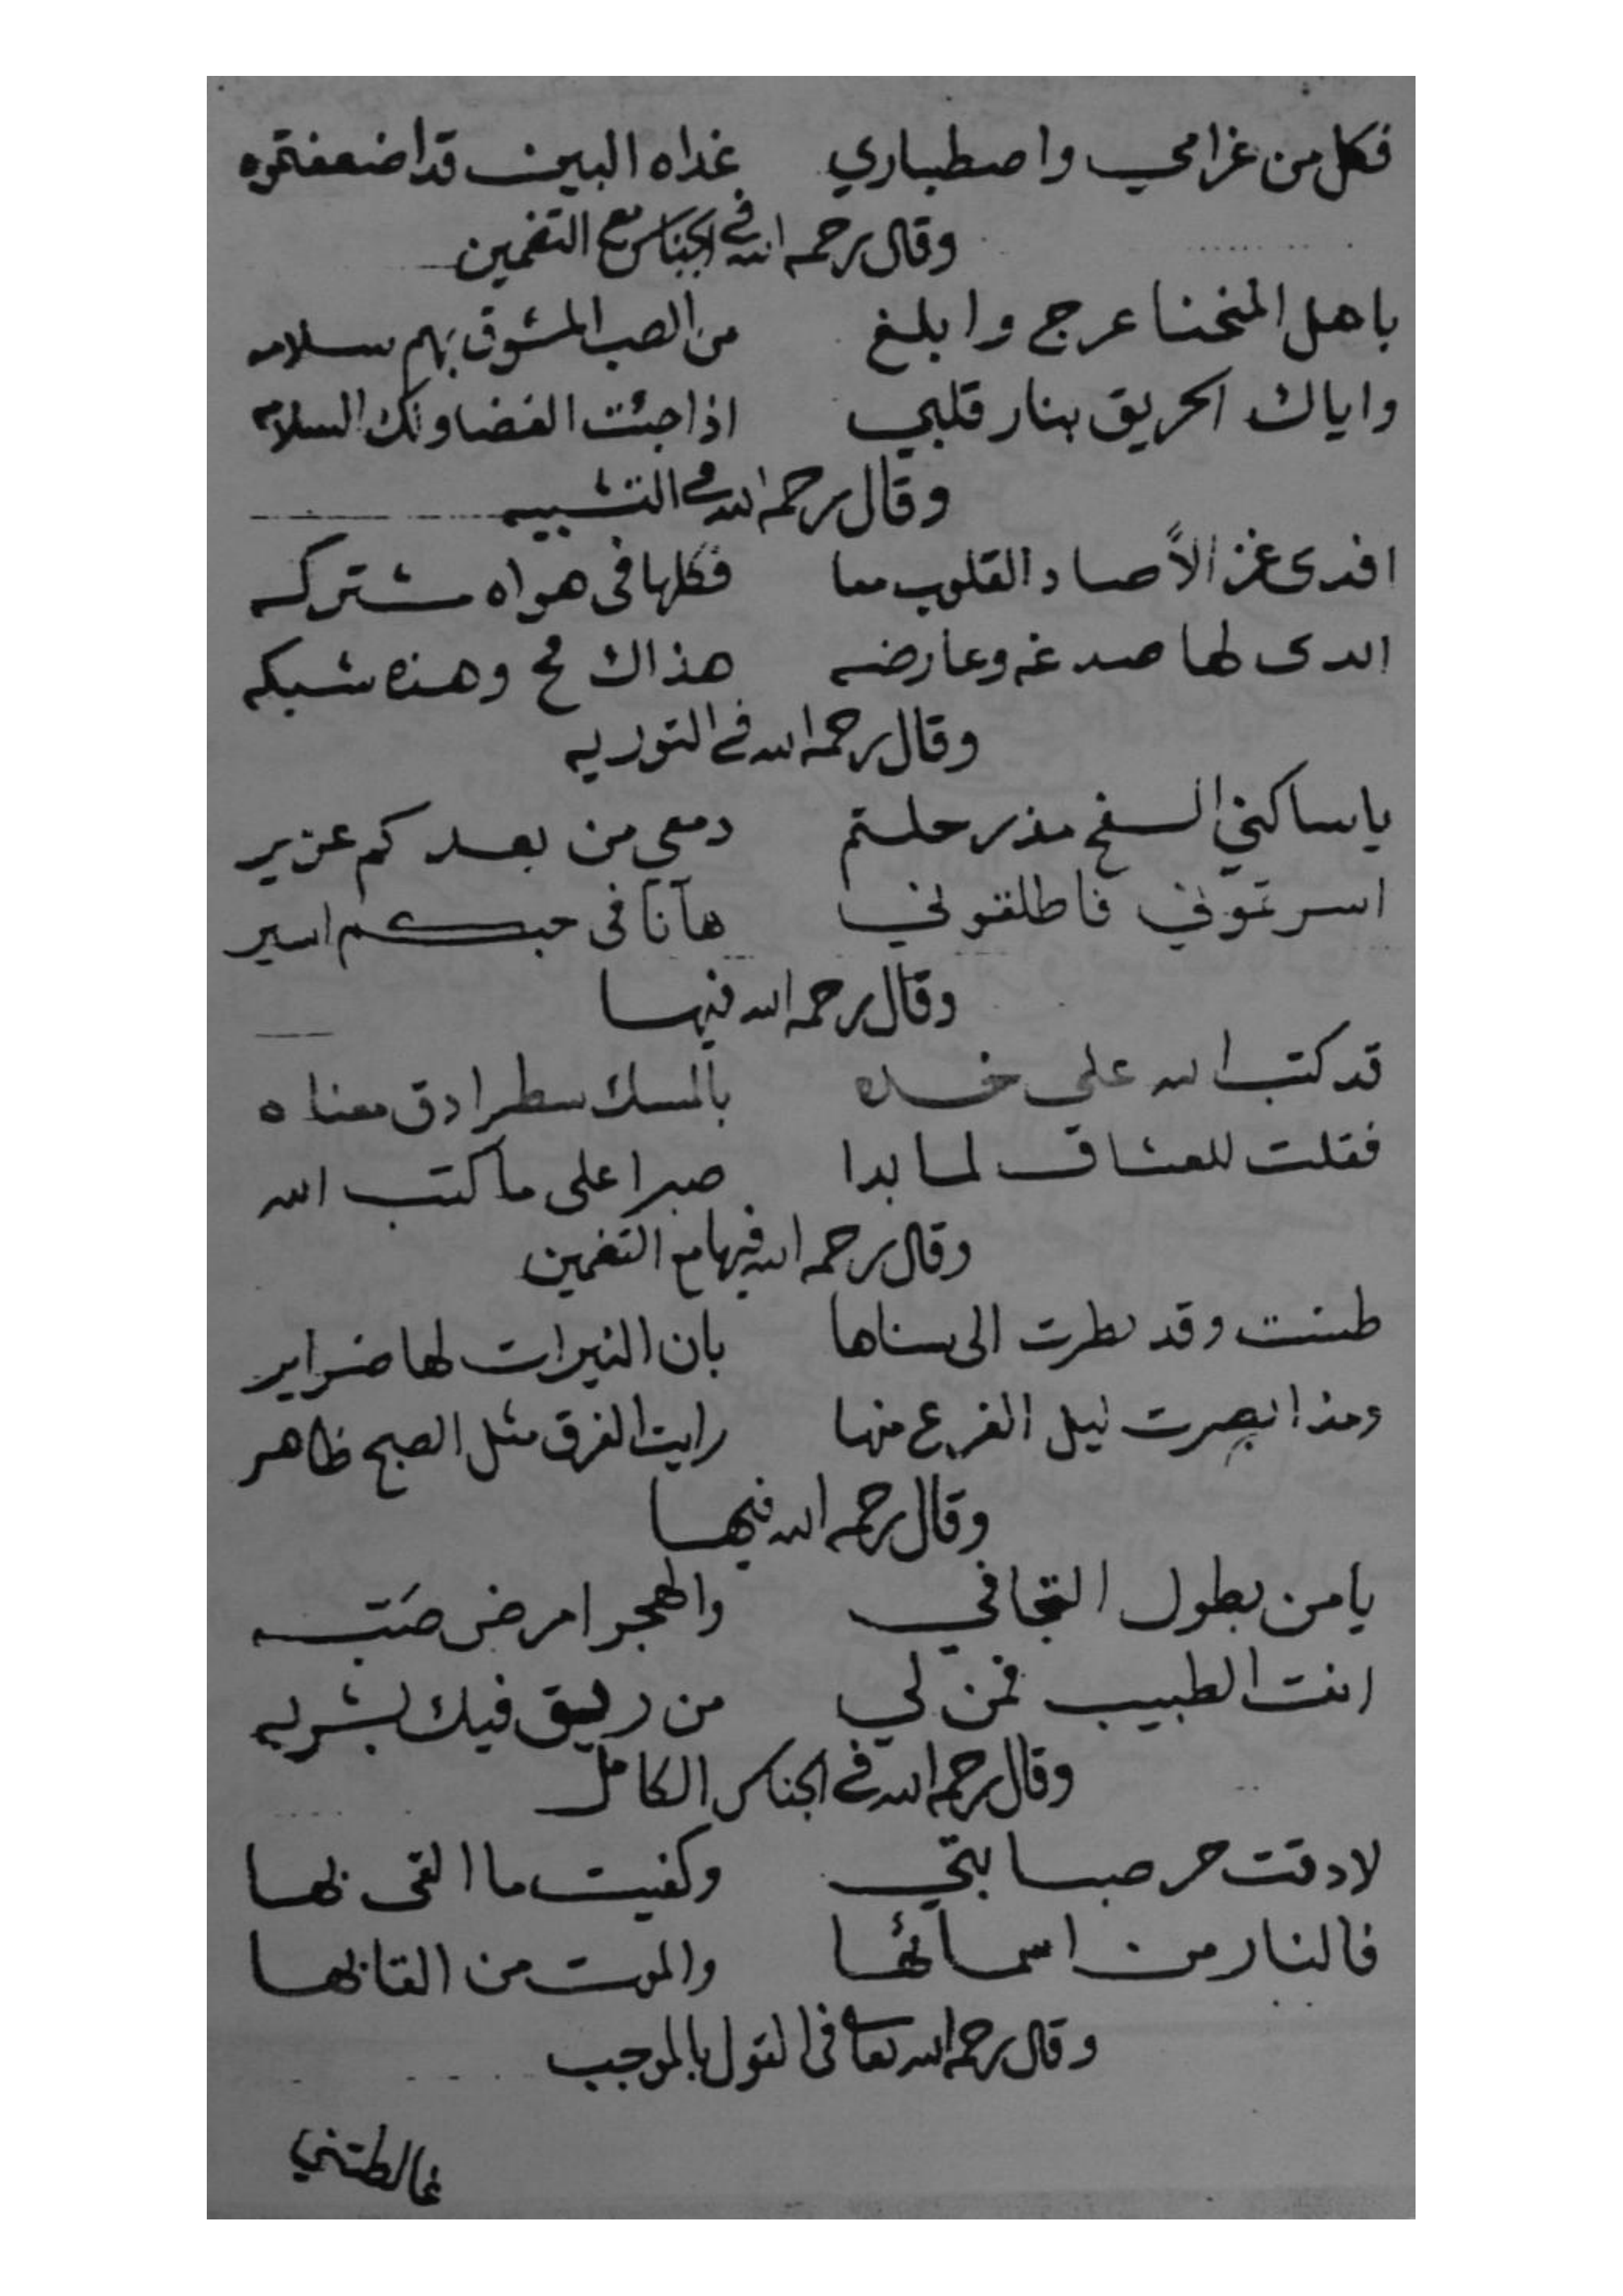 فكل من غرامي واصطباري غداه البين قد اضعفتموه
وقال رحمه الله في الجناس مع التضمين
باهل المنحنا عرج وابلغ من الصب المشوق بهم سلامه
واياك الحريق بنار قلبي اذا جئت الغضا ولك السلامه
وقال رحمه الله في التشبيه
افدى غزالاً صاد القلوب معا فكلها فى هواه مشتركه
ابدى لها صدغه وعارضه هذاك فخ وهذه شبكه
وقال رحمه الله في التوريه
يا ساكني السفح مذ رحلتم دمعي من بعدكم غزير
اسرتموني فاطلقوني ها آنا فى حبكم اسير
وقال رحمه الله فيها
قد كتب الله على خده بالمسك سطرا دق معناه
فقلت للعشاق لما بدا صبرا على ما كتب الله
وقال رحمه الله فيها مع التضمين
ظننت وقد نظرت الى سناها بان النيرات لها ضراير
ومذ ابصرت ليل الفرع منها رايت الفرق مثل الصبح ظاهر
وقال رحمه الله فيها
يا من بطول التجافي والهجر امرض صَبه
انت الطبيب فمن لي من ريق فيك بشربه
وقال رحمه الله في الجناس الكامل
لا دقت حر صبابتي وكفيت ما القى بها
فالنار من اسمائها والموت من القابها
وقال رحمه الله تعا فى القول بالموجب
غالطتني